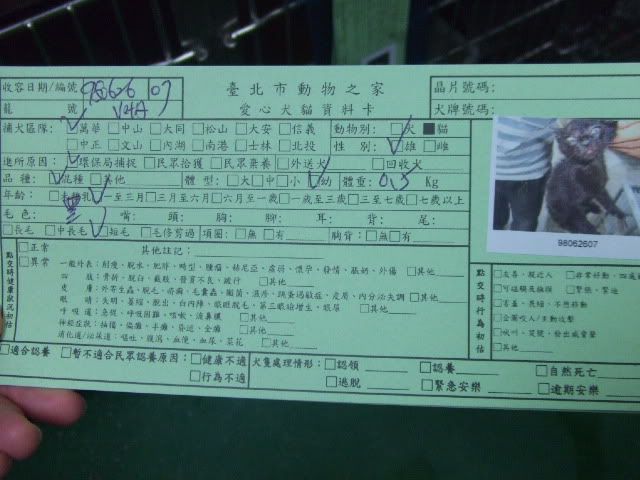 臺北市動物之家
愛心犬貓資料卡
收容日期/編號 980626 07
籠 號 V24A
晶片號碼:
犬牌號碼:
捕犬區隊: ☑萬華 □中山 □大同 □松山 □大安 □信義 動物別: □犬 ■貓
□中正 □文山 □內湖 □南港 □士林 □北投 性 別: ☑雄 □雌
進所原因: ☑環保局捕捉 □民眾拾獲 □民眾棄養 □外送犬 □回收犬
品 種: ☑混種 □其他 體 型: □大 □中 □小 ☑幼 體重: 0.5 Kg
年齡: □未離乳 ☑一至三月 □三月至六月 □六月至一歲 □一歲至三歲 □三至七歲 □七歲以上
毛 色: 黑 嘴: 頭: 胸: 腳: 耳: 背: 尾:
□長毛 □中長毛 ☑短毛 □毛修剪過 項圈: □無 □有 胸背: □無 □有
98062607
點交時健康狀況初估
□正常
□異常
其他註記:
一般外表: 削瘦、脫水、肥胖、畸型、腫瘤、赫尼亞、虛弱、懷孕、發情、脹奶、外傷 □其他
四 肢: 骨折、脫臼、截肢、發育不良、跛行 □其他
皮 膚: 外寄生蟲、脫毛、疥癬、毛囊蟲、黴菌、濕疹、跳蚤過敏症、皮屑、內分泌失調 □其他
眼 睛: 失明、萎縮、脫出、白內障、眼瞼脫毛、第三眼瞼增生、眼屎 □其他
呼 吸 道: 急促、呼吸困難、咳嗽、流鼻膿 □其他
神經症狀: 抽搐、偏癱、半癱、昏迷、全癱 □其他
消化道/泌尿道: 嘔吐、腹瀉、血便、血尿、菜花 □其他
點交時行為初估
□友善、親近人 □非常好動、四處
□可碰觸長抽撫 □緊張、緊迫
□害羞、畏縮、不想移動
□企圖咬人/主動攻擊
□吠叫、哭號、發出威脅聲
□其他
□適合認養 □暫不適合民眾認養原因: □健康不適 犬隻處理情形: □認領 □認養 □自然死亡
□行為不適 □逃脫 □緊急安樂 □逾期安樂